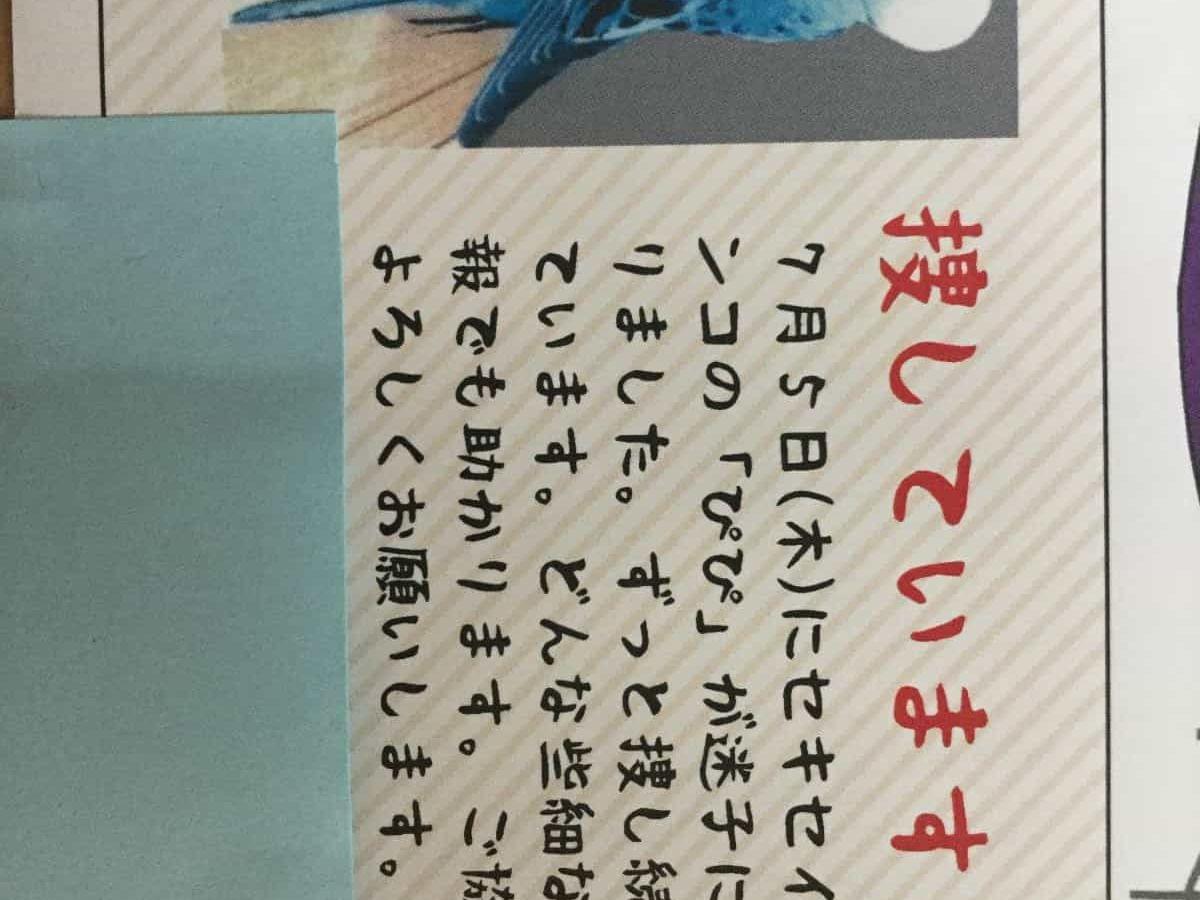 捜しています
7月5日(木)にセキセイ
ンコの「ぴぴ」が迷子に
りました。ずっと捜し続
ています。どんな些細な
報でも助かります。ご協
よろしくお願いします。